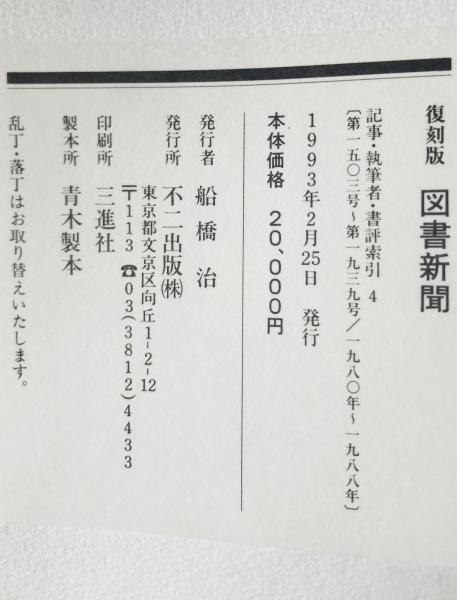 復刻版 図書新聞
記事・執筆者・書評索引 4
〔第一五〇三号~第一九三九号/一九八〇年~一九八八年〕
1993年2月25日 発行
本体価格 20,000円
発行者 船橋治
発行所 不二出版㈱
東京都文京区向丘1-2-12
〒113 ☎03(3812)4433
印刷所 三進社
製本所 青木製本
乱丁・落丁はお取り替えいたします。